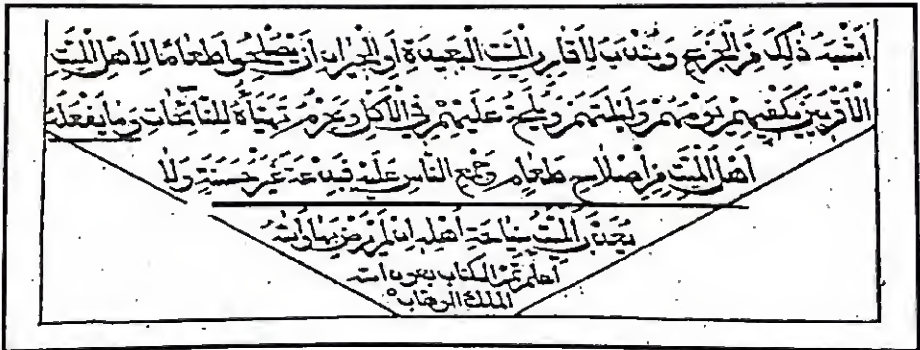 أَشْبَهَ ذَلِكَ مِنَ الْجَزَعِ وَيُنْدَبُ لِأَقَارِبِ الْمَيِّتِ الْبَعِيدَةِ أَوِ الْجِيرَانِ أَنْ يُصْلِحُوا طَعَامًا لِأَهْلِ الْمَيِّتِ
الْأَقْرَبِينَ يَكْفِيهِمْ يَوْمَهُمْ وَلَيْلَتَهُمْ وَيُلَحُّ عَلَيْهِمْ فِي الْأَكْلِ وَيَحْرُمُ تَهْيِأَةُ لِلنَّائِحَاتِ وَمَا يَفْعَلُهُ
أَهْلُ الْمَيِّتِ مِنْ إِصْلَاحِ طَعَامٍ وَجَمْعِ النَّاسِ عَلَيْهِ فَبِدْعَةٌ غَيْرُ حَسَنَةٍ وَلَا
يُعَذَّبُ الْمَيِّتُ بِنِيَاحَةِ أَهْلِهِ إِنْ لَمْ يَرْضَ بِهَا وَاللهُ
أَعْلَمُ تَمَّ الْكِتَابُ بِعَوْنِ اللهِ
الْمَلِكِ الْوَهَّابِ